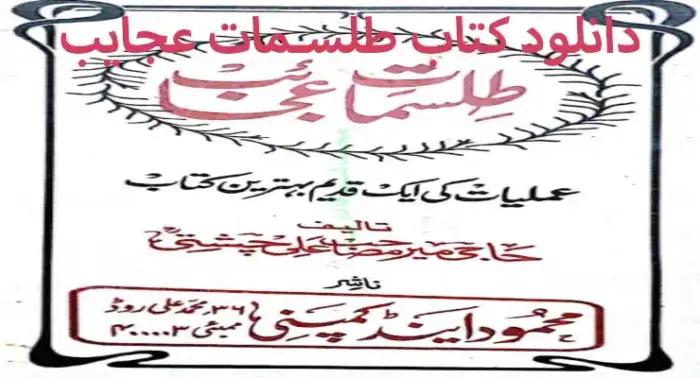 دانلود کتاب طلسمات عجایب
طلسمات عجائب
عملیات کی ایک قدیم بہترین کتاب
تالیف
حاجی میر علی چشتی
ناشر
محمود اینڈ کمپنی ۳۶، محمد علی روڈ
ممبئی ۴۰۰۰۰۳